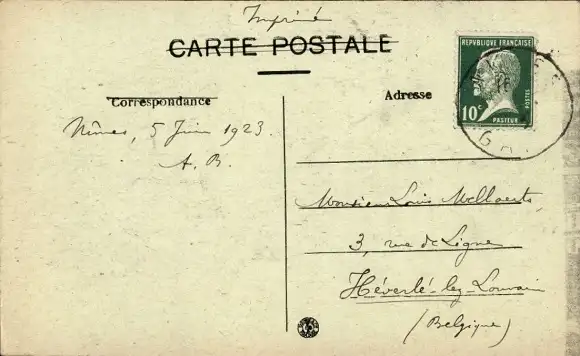 Imprimé
CARTE POSTALE
Correspondance
Adresse
RÉPUBLIQUE FRANÇAISE
10c
POSTES
PASTEUR
Nîmes, 5 Juin 1923.
A. B.
Monsieur Louis Mellaerts,
3, rue de Ligne
Héverlé-lez-Louvain
(Belgique)